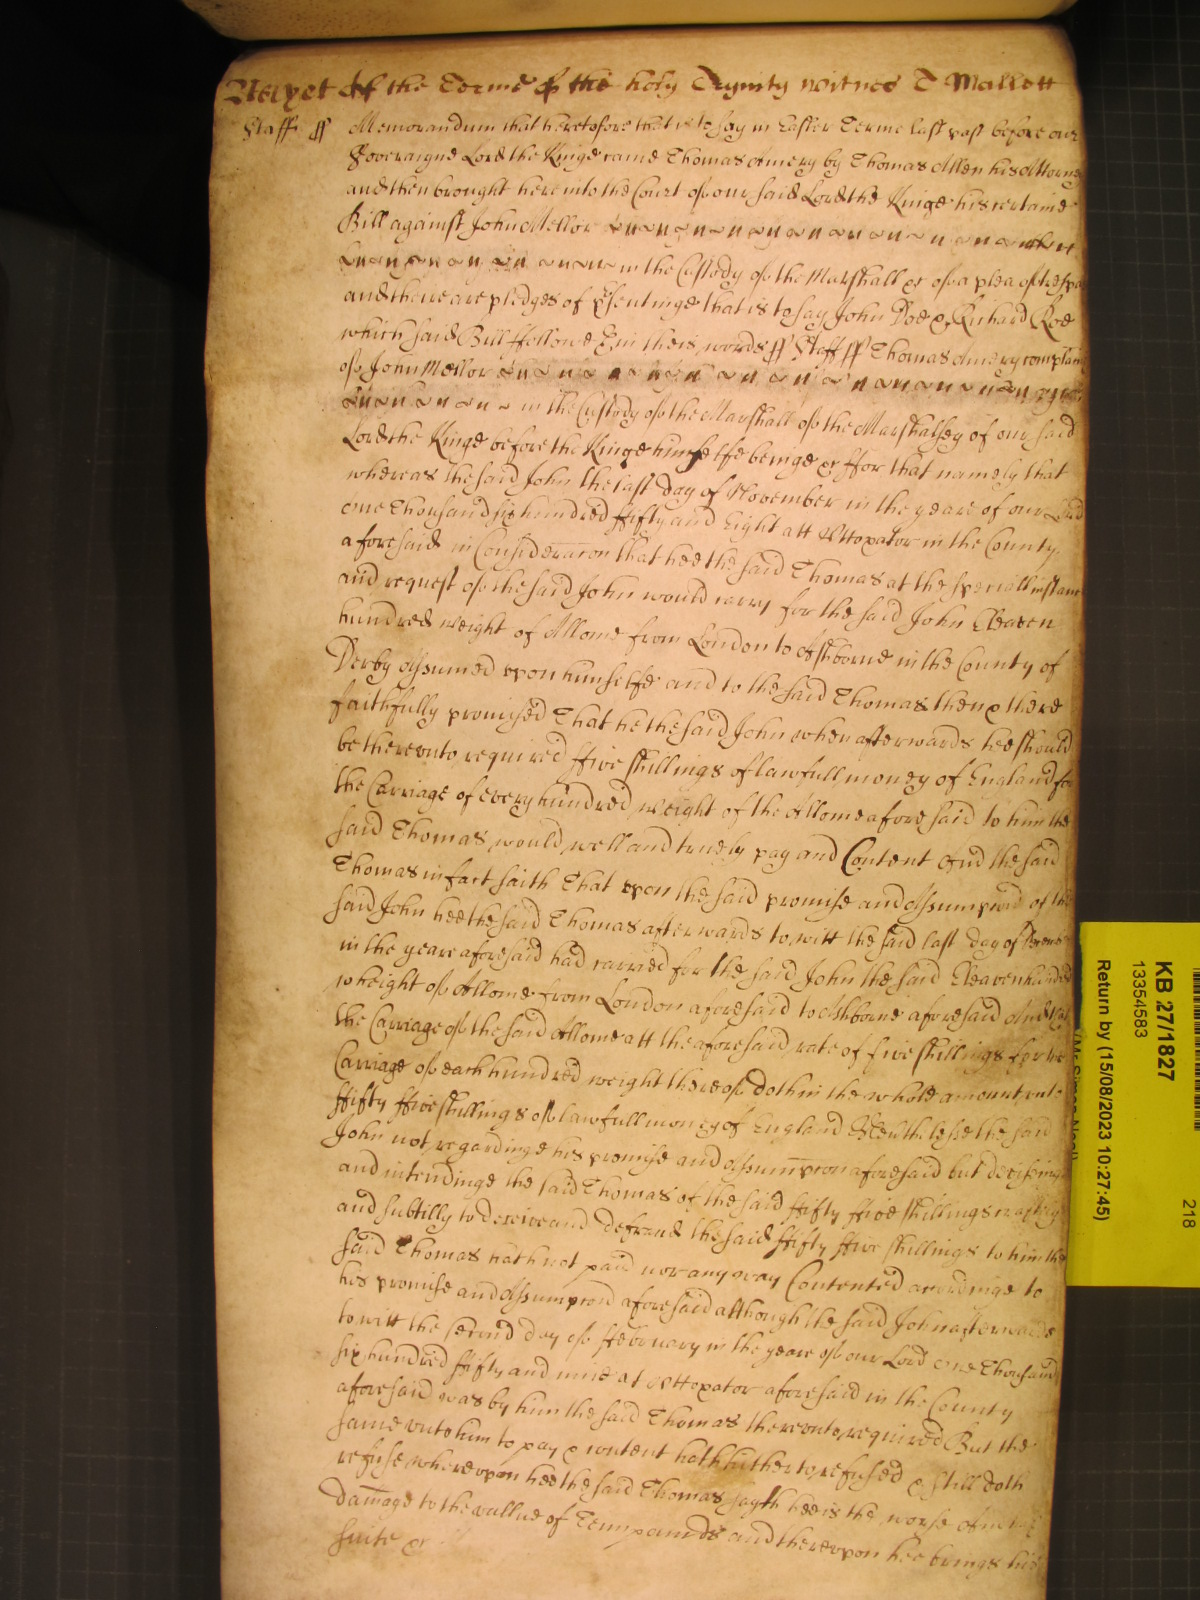 As yet of the Terme of the holy Trynity witnes T Mallett
Staff ss Memorandum that heretofore that is to say in Easter Terme last past before our
Soveraigne Lord the Kinge came Thomas Amery by Thomas Allen his Attorney
and then brought here into the Court of our said Lord the Kinge his certaine
Bill against John Mellor
in the Custody of the Marshall &c of a plea of trespas
and there are pledges of p'sentinge that is to say John Doe & Richard Roe
which said Bill ffolloweth in theis words ss Staff ss Thomas Amery complaines
of John Mellor
in the Custody of the Marshall of the Marshalsey of our said
Lord the Kinge before the Kinge himselfe beinge &c ffor that namely that
whereas the said John the last day of November in the yeare of our Lord
one Thousand six hundred ffifty and Eight att Uttoxator in the County
aforesaid in Consideracon that hee the said Thomas at the speciall instance
and request of the said John would carry for the said John Eleaven
hundred weight of Allome from London to Ashborne in the County of
Derby assumed upon himselfe and to the said Thomas then & there
faithfully promised That he the said John when afterwards hee should
be thereunto required ffive shillings of lawfull money of England for
the Carriage of every hundred weight of the Allome aforesaid to him the
said Thomas would well and truely pay and Content And the said
Thomas in fact saith That upon the said promise and assumpcond of the
said John hee the said Thomas afterwards to witt the said last day of November
in the yeare aforesaid had carried for the said John the said Eleaven hundred
weight of Allome from London aforesaid to Ashborne aforesaid And that
the Carriage of the said Allome att the aforesaid rate of five shillings for the
Carriage of each hundred weight thereof doth in the whole amount unto
ffifty ffive shillings of lawfull money of England Neverthelesse the said
John not regardinge his promise and assumpcon aforesaid but devisinge
and intendinge the said Thomas of the said ffifty ffive shillings craftily
and subtilly to deceive and defraud the said ffifty ffive shillings to him the
said Thomas hath not paid nor any way Contented accordinge to
his promise and assumpcond aforesaid although the said John afterwards
to witt the second day of ffebruary in the yeare of our Lord one Thousand
six hundred ffifty and nine at Uttoxator aforesaid in the County
aforesaid was by him the said Thomas thereunto required But the
same unto him to pay & content hath hitherto refused & still doth
refuse whereupon hee the said Thomas sayth hee is the worse and hath
Damage to the vallue of Tenn pounds and thereupon hee brings his
suite &c
KB 27/1827
13354583
Return by (15/08/2023 10:27:45)
218